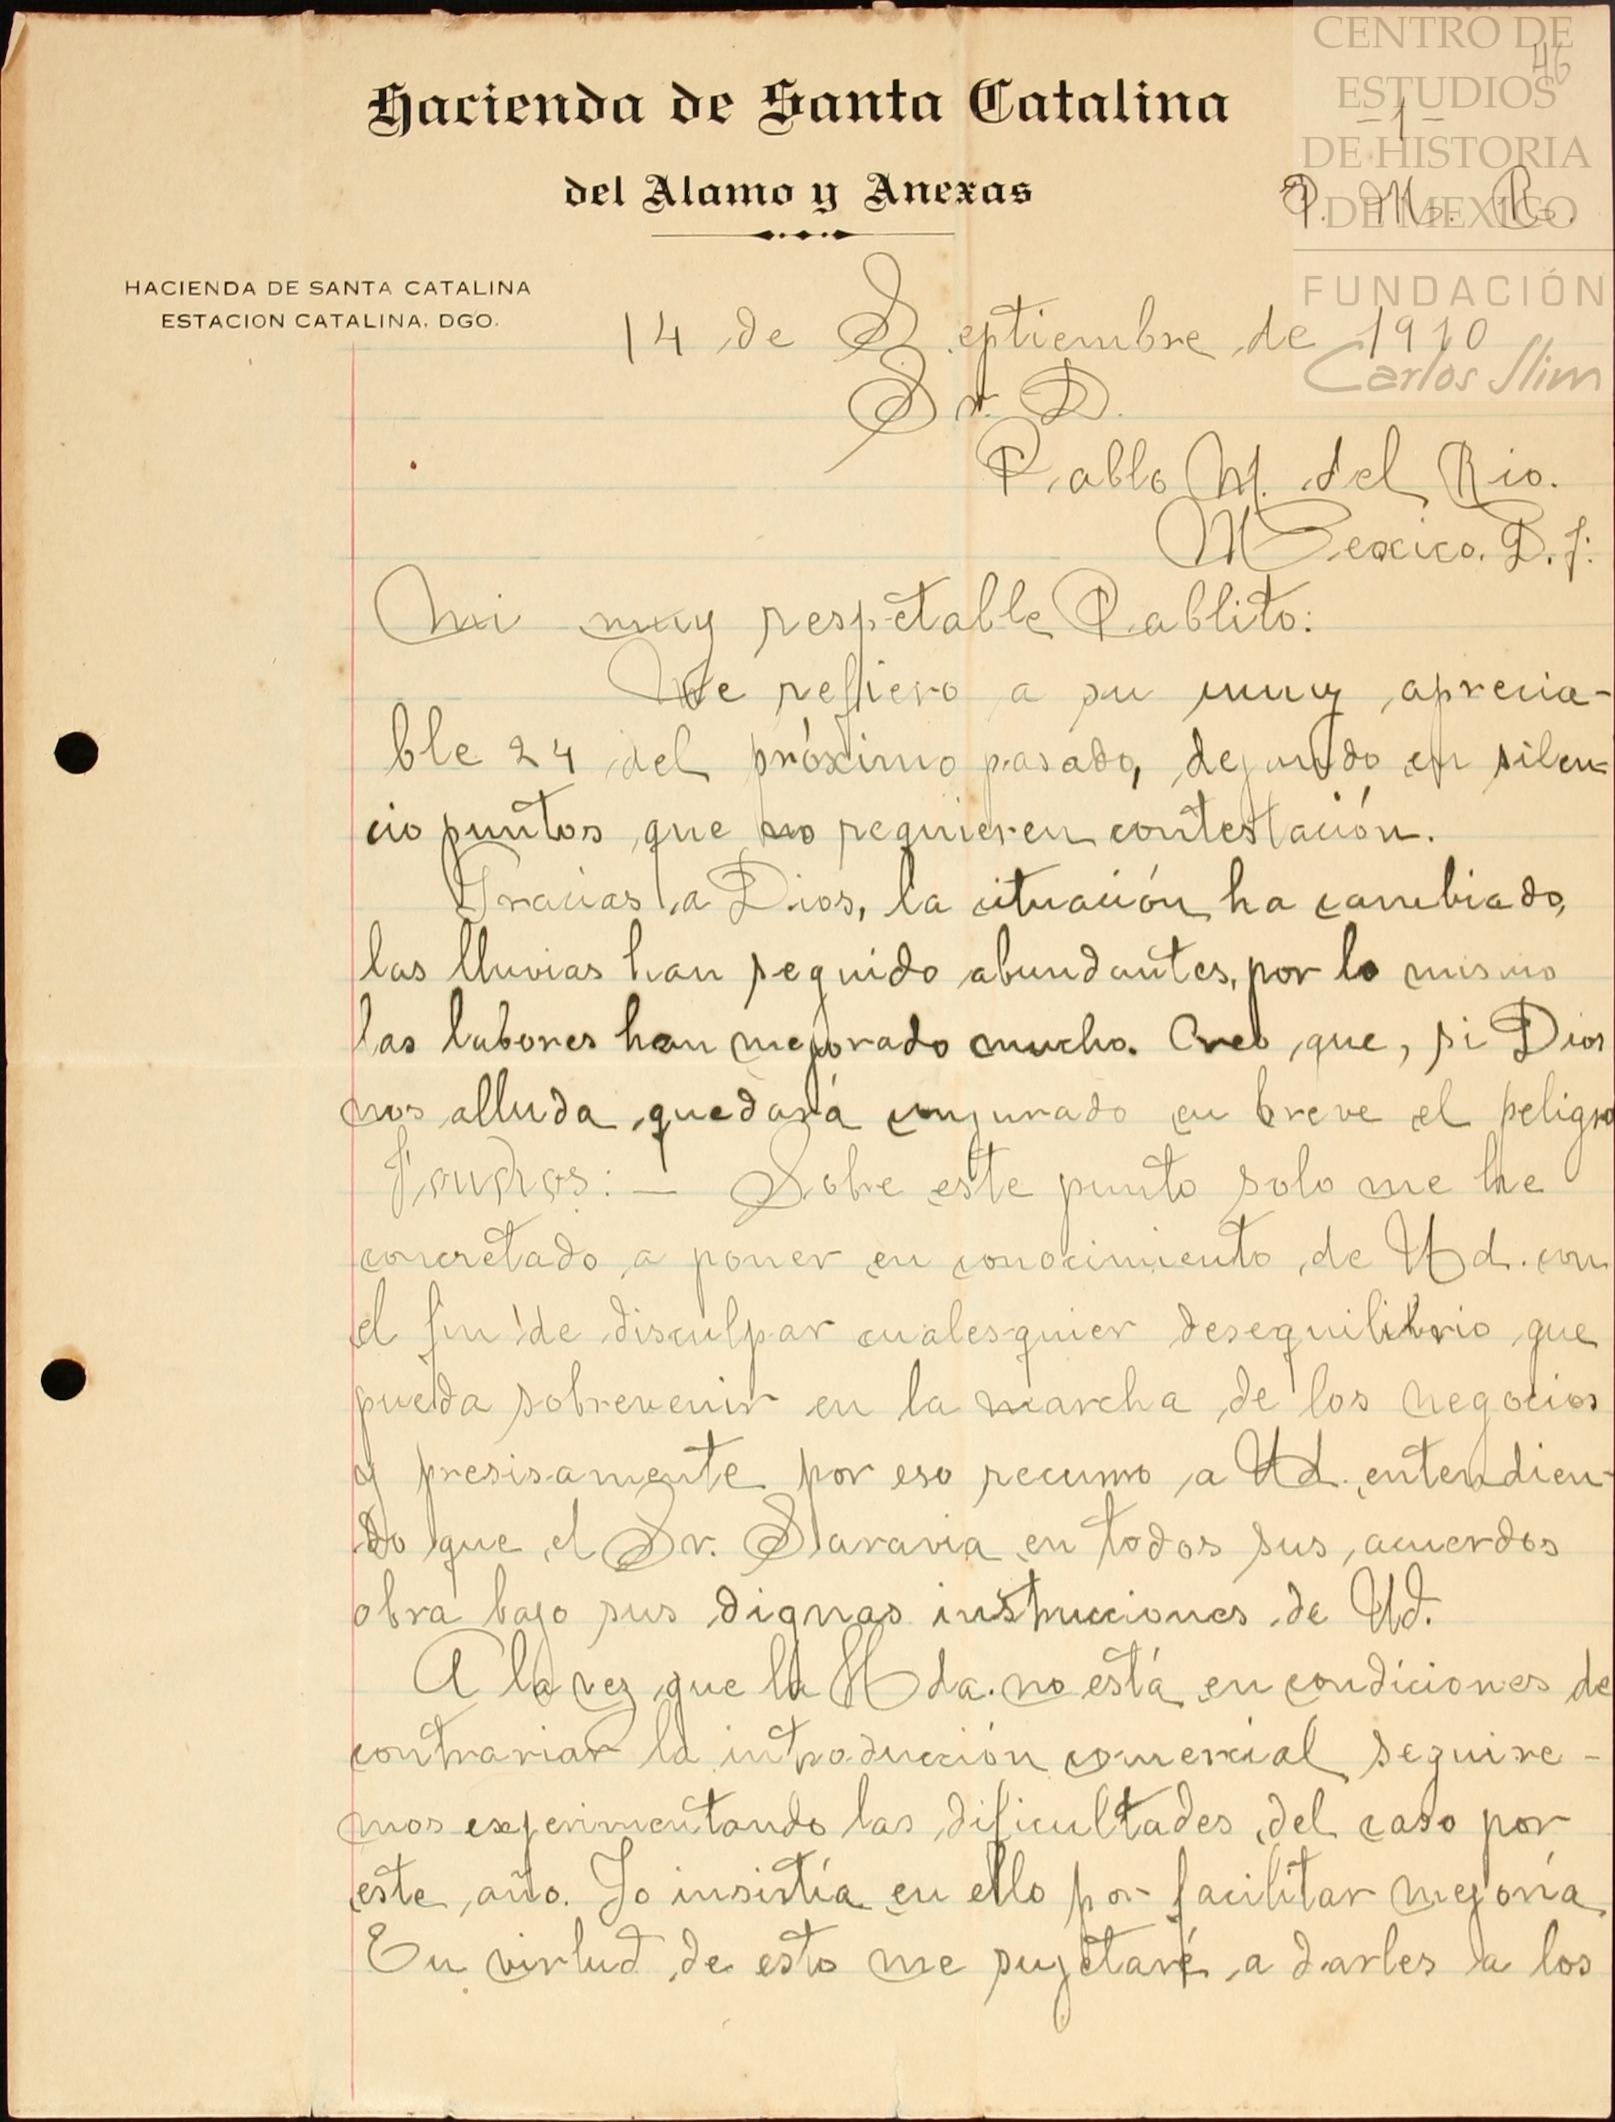 CENTRO DE
46
ESTUDIOS
- 1 -
DE HISTORIA
DE MEXICO
P. M. R.
FUNDACIÓN
Carlos Slim
Hacienda de Santa Catalina
del Alamo y Anexas
HACIENDA DE SANTA CATALINA
ESTACION CATALINA, DGO.
14 de Septiembre de 1910
Sr. D.
Pablo M. del Rio.
Mexico. D. f:
Mi muy respetable Pablito:
Me refiero a su muy aprecia-
ble 24 del próximo pasado, dejando en silen-
cio puntos que no requieren contestación.
Gracias a Dios, la cituación ha cambiado,
las lluvias han seguido abundantes, por lo mismo
las labores han mejorado mucho. Creo que, si Dios
nos alluda quedará conjurado en breve el peligro
Fondos: — Sobre este punto solo me he
concretado a poner en conocimiento de Ud. con
el fin de disculpar cualesquier desequilibrio que
pueda sobrevenir en la marcha de los negocios
y presisamente por eso recurro a Ud. entendien-
do que el Sr. Saravia en todos sus acuerdos
obra bajo sus dignas instrucciones de Ud.
A la vez que la Hda. no está en condiciones de
contrariar la introducción comercial seguire-
mos experimentando las dificultades del caso por
este año. Yo insistía en ello por facilitar mejoría
En virtud de esto me sujetaré a darles a los